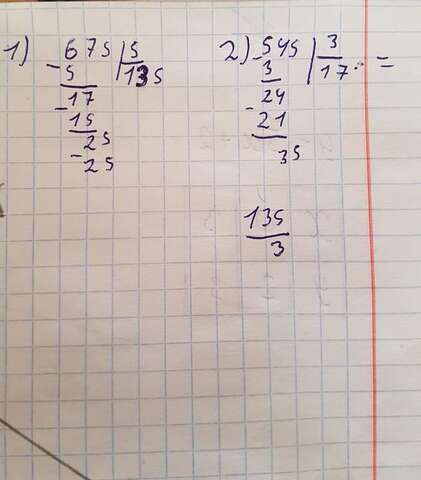 1) 675 | 5
- 5 | 135
17
- 15
25
- 25
2) - 545 | 3
3 | 17. =
24
- 21
35
135
3